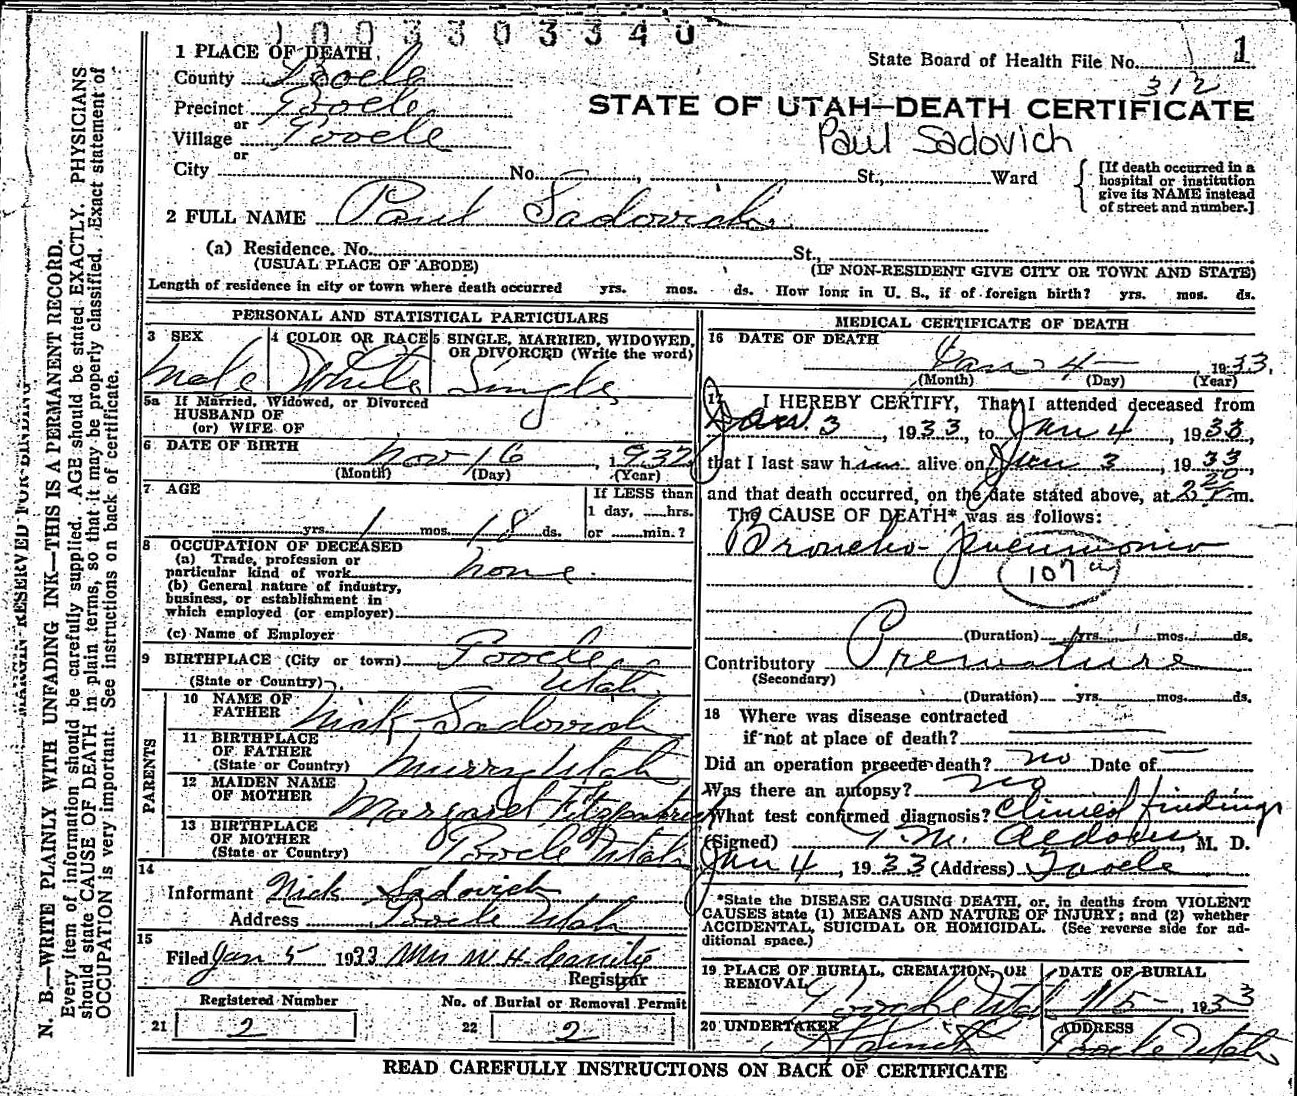 1003303340
1 PLACE OF DEATH
County Tooele
Precinct Tooele
or
Village Tooele
or
City No. , St., Ward
State Board of Health File No. 1
312
STATE OF UTAH—DEATH CERTIFICATE
Paul Sadovich
[If death occurred in a
hospital or institution
give its NAME instead
of street and number.]
2 FULL NAME Paul Sadovich
(a) Residence. No. St.,
(USUAL PLACE OF ABODE) (IF NON-RESIDENT GIVE CITY OR TOWN AND STATE)
Length of residence in city or town where death occurred yrs. mos. ds. How long in U. S., if of foreign birth? yrs. mos. ds.
MARGIN RESERVED FOR BINDING
N. B.—WRITE PLAINLY WITH UNFADING INK—THIS IS A PERMANENT RECORD.
Every item of information should be carefully supplied. AGE should be stated EXACTLY. PHYSICIANS
should state CAUSE OF DEATH in plain terms, so that it may be properly classified. Exact statement of
OCCUPATION is very important. See instructions on back of certificate.
PERSONAL AND STATISTICAL PARTICULARS
3 SEX
Male
4 COLOR OR RACE
White
5 SINGLE, MARRIED, WIDOWED,
OR DIVORCED (Write the word)
Single
5a If Married, Widowed, or Divorced
HUSBAND OF
(or) WIFE OF
6 DATE OF BIRTH
Nov 16, 1932
(Month) (Day) (Year)
7 AGE
yrs. 1 mos. 18 ds.
If LESS than
1 day, hrs.
or min.?
8 OCCUPATION OF DECEASED
(a) Trade, profession or
particular kind of work none
(b) General nature of industry,
business, or establishment in
which employed (or employer)
(c) Name of Employer
9 BIRTHPLACE (City or town) Tooele
(State or Country) Utah
PARENTS
10 NAME OF
FATHER Nick Sadovich
11 BIRTHPLACE
OF FATHER
(State or Country) Murry Utah
12 MAIDEN NAME
OF MOTHER Margaret Fitzpatrick
13 BIRTHPLACE
OF MOTHER
(State or Country) Tooele Utah
14
Informant Nick Sadovich
Address Tooele Utah
15
Filed Jan 5 1933 Mrs W. H.
Registrar
Registered Number
21 2
No. of Burial or Removal Permit
22 2
MEDICAL CERTIFICATE OF DEATH
16 DATE OF DEATH
Jan 4 1933.
(Month) (Day) (Year)
17 I HEREBY CERTIFY, That I attended deceased from
Jan. 3, 1933, to Jan 4, 1933,
that I last saw him alive on Jan 3, 1933,
and that death occurred, on the date stated above, at 2 20 P m.
The CAUSE OF DEATH* was as follows:
Broncho-Pneumonia
107a
(Duration) yrs. mos. ds.
Contributory Premature
(Secondary)
(Duration) yrs. mos. ds.
18 Where was disease contracted
if not at place of death?
Did an operation precede death? no Date of
Was there an autopsy? no
What test confirmed diagnosis? Clinical findings
(Signed) M. D.
Jan 4, 1933 (Address) Tooele
*State the DISEASE CAUSING DEATH, or, in deaths from VIOLENT
CAUSES state (1) MEANS AND NATURE OF INJURY; and (2) whether
ACCIDENTAL, SUICIDAL OR HOMICIDAL. (See reverse side for ad-
ditional space.)
19 PLACE OF BURIAL, CREMATION, OR
REMOVAL
Tooele Utah
DATE OF BURIAL
1/5- 1933
20 UNDERTAKER
ADDRESS
Tooele Utah
READ CAREFULLY INSTRUCTIONS ON BACK OF CERTIFICATE